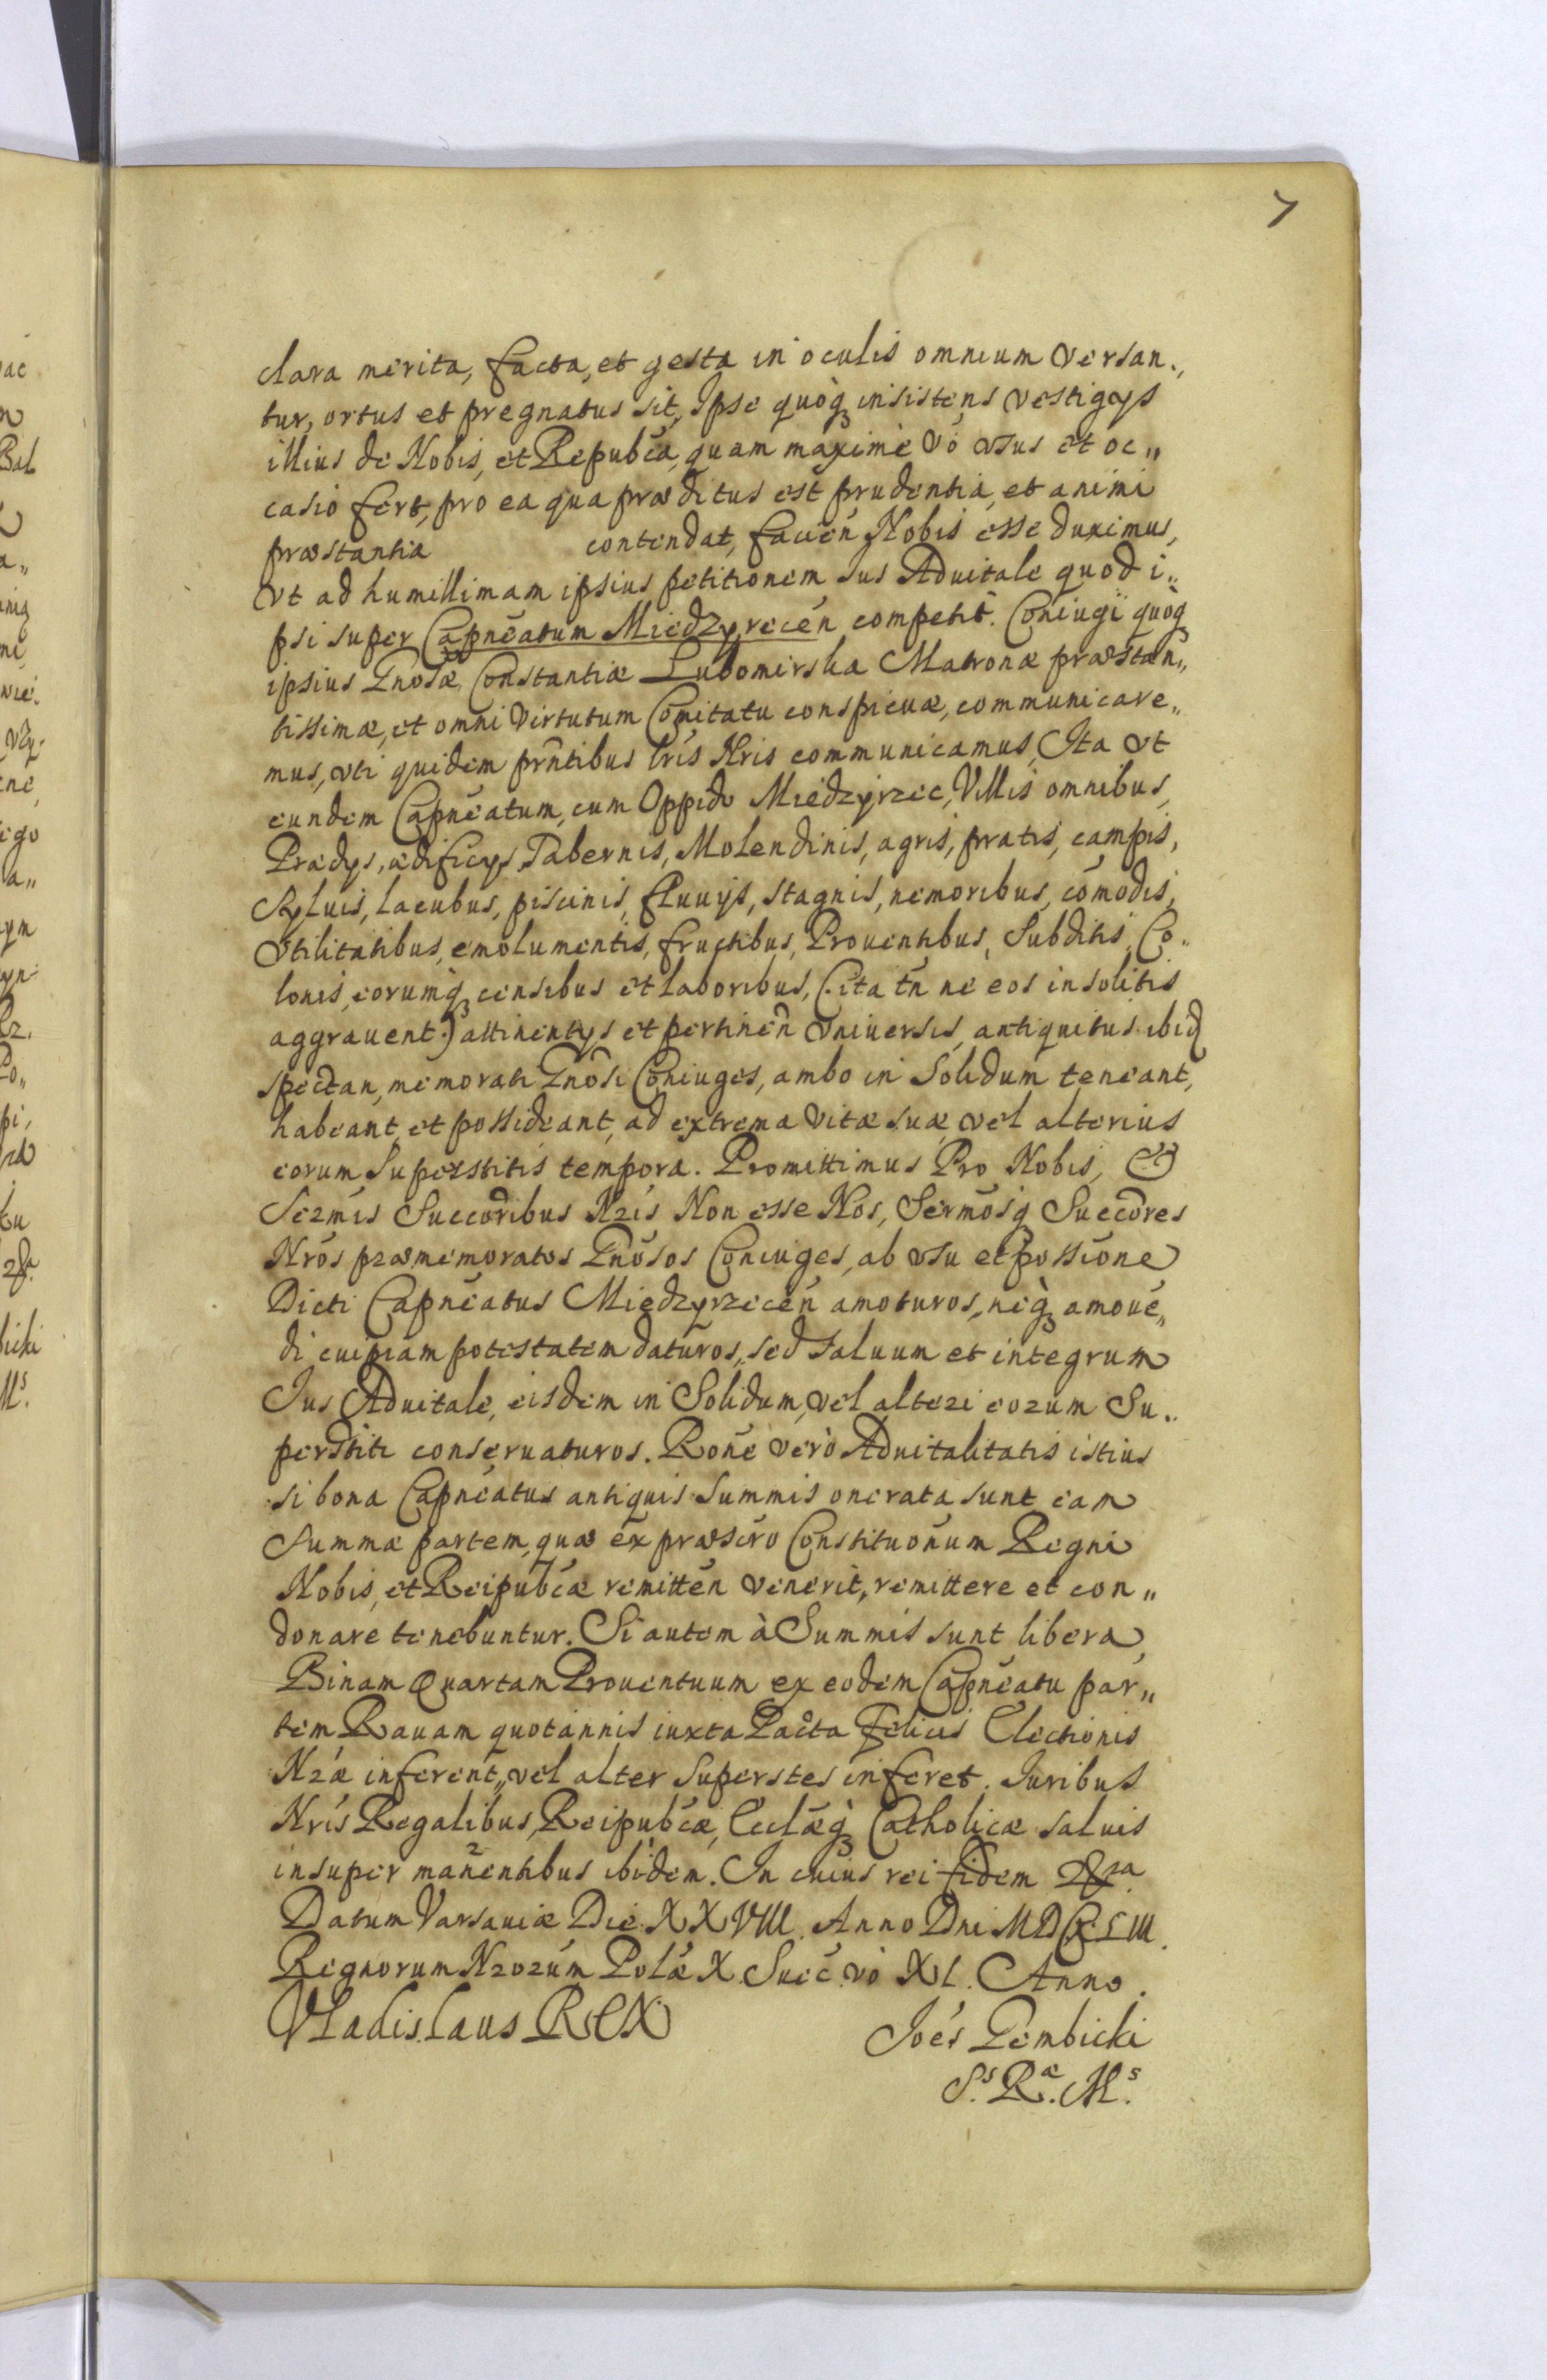 7
clara merita, facta, et gesta in oculis omnium versan„
tur, ortus et pregnatus sit, Ipse quoq̀ insistens vestigys
illius de Nobis, et Repubca, quam maximè vó vsus et oc„
casio fert, pro ea qua præditus est prudentia, et animi
præstantia contendat, facien̄ Nobis esse duximus,
Vt ad humillimam ipsius petitionem Ius Aduitale quod i„
psi super Capneatum Miedzyrecen̄ competit. Coniugi quoq̀
ipsius Gnosæ Constantiæ Lubomirska Matronæ præstan„
tissimæ, et omni Virtutum Comitatu conspicuæ, communicare„
mus, vti quidem prntibus lris Nris communicamus, Ita vt
eundem Capneatum, cum Oppido Miedzyrzec, Villis omnibus,
Prædys, ædificys, Tabernis, Molendinis, agris, pratis, campis,
Syluis, lacubus, piscinis, fluuijs, stagnis, nemoribus, comodis,
Vtilitatibus, emolumentis, fructibus, Prouentibus, Subditis, Co„
lonis, eorumq̀ censibus et laboribus, (ita tn̄ ne eos insolitis
aggrauent.) attinentys et pertinen̄ Vniuersis, antiquitus ibid
spectan, memorati Gnosi Coniuges, ambo in Solidum teneant,
habeant, et possideant, ad extrema Vitæ suæ vel alterius
eorum Superstitis tempora. Promittimus Pro Nobis, et
Sermis Succoribus Nris Non esse Nos, Sermosq̀ Succores
Nros præmemoratos Gnosos Coniuges, ab vsu et possione
Dicti Capneatus Miedzyrzecen̄ amoturos, neq̀ amoue„
di cuipiam potestatem daturos, sed saluum et integrum
Ius Aduitale, eisdem in Solidum, vel alteri eorum Su„
perstiti conseruaturos. Rone verò Aduitalitatis istius
si bona Capneatus antiquis Summis onerata sunt eam
Summæ partem, quæ ex præscro Constitutonum Regni
Nobis, et Reipubcæ remitten̄ venerit, remittere et con„
donare tenebuntur. Si autem à Summis sunt libera,
Binam Quartam Prouentuum ex eodem Capneatu par„
tem Rauam quotannis iuxta Pacta felicis Electionis
Nræ inferent, vel alter Superstes inferet. Iuribus
Nris Regalibus, Reipubcæ, Eclæq̀ Catholicæ saluis
insuper manentibus ibidem. In cuius rei fidem &ra.
Datum Varsauiæ Die XXVIII. Anno Dni MDCXLIII.
Regnorum Nrorum Polæ X. Suec. vò XI. Anno.
Vladislaus REX
Ioes Gembicki
S.s R.æ M.s